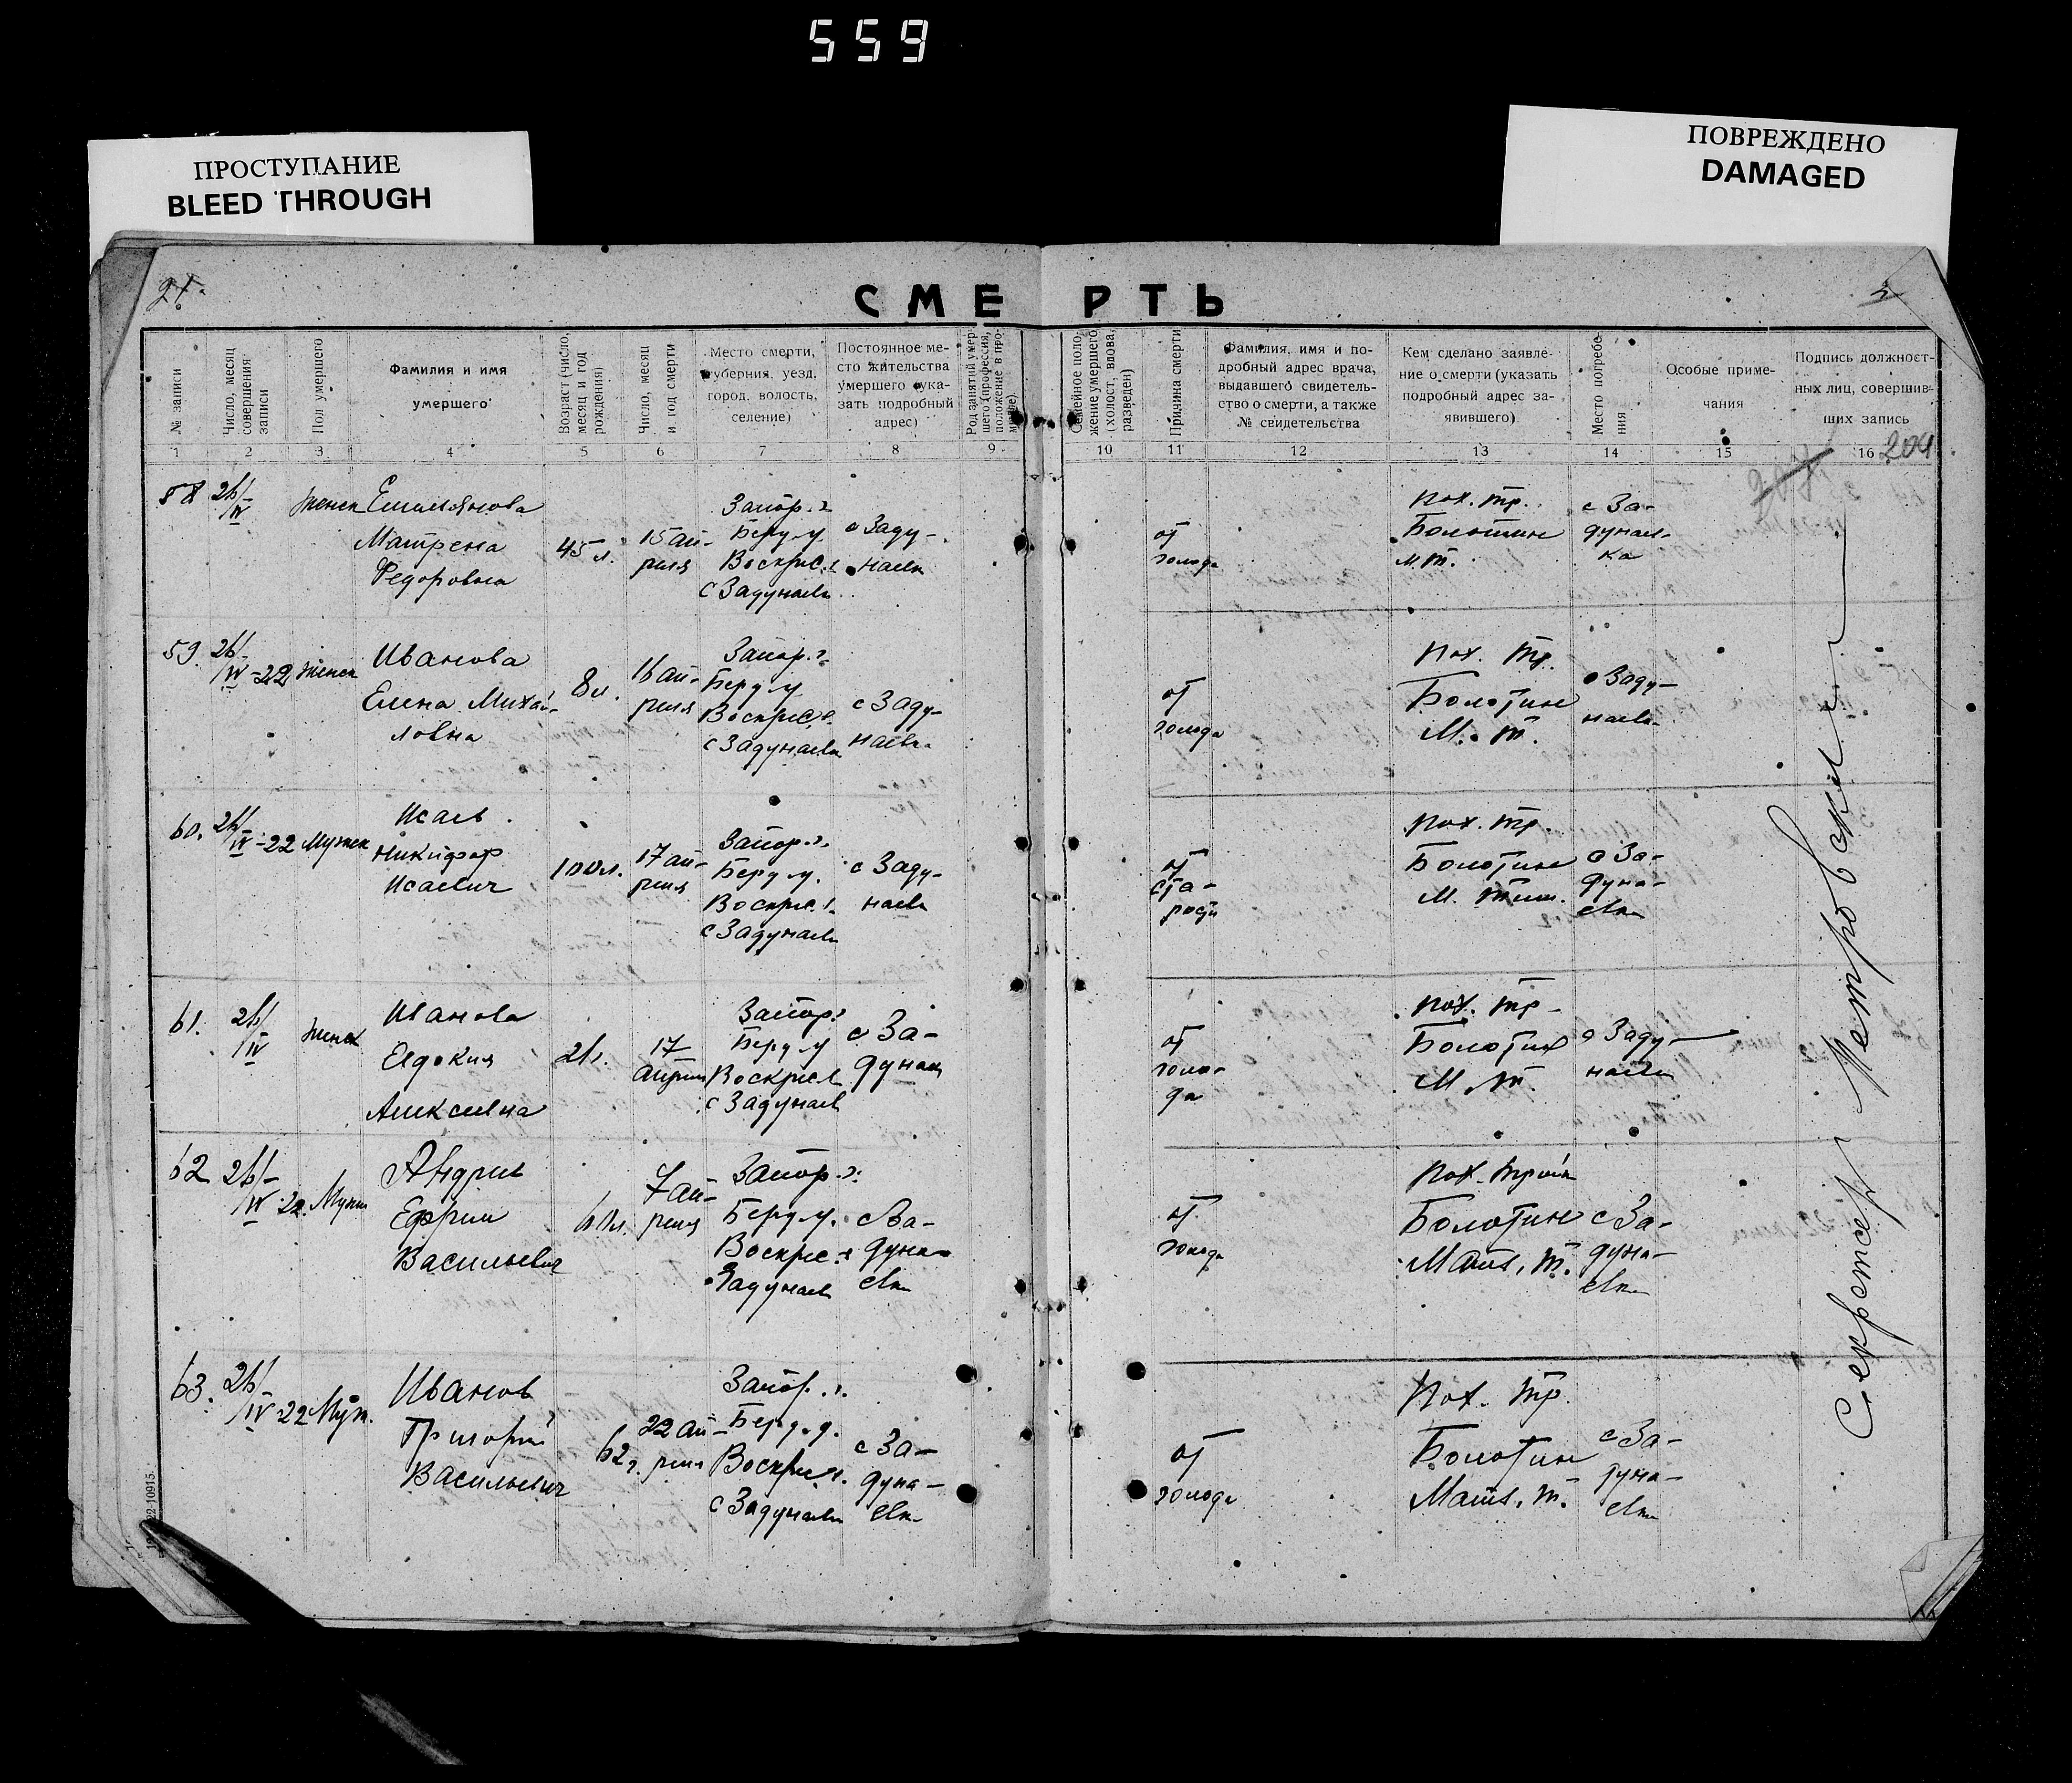 559
ПРОСТУПАНИЕ
BLEED THROUGH
ПОВРЕЖДЕНО
DAMAGED
СМЕРТЬ
№ записи
Число, месяц совершения записи
Пол умершего
Фамилия и имя
умершего
Возраст (число, месяц и год рождения)
Число, месяц и год смерти
Место смерти,
губерния, уезд,
город, волость,
селение)
Постоянное ме-
сто жительства
умершего (ука-
зать подробный
адрес)
Род занятий умер-
шего (профессия,
положение в про-
мысле).
Семейное поло-
жение умершего
(холост, вдова,
разведен)
Причина смерти
Фамилия, имя и по-
дробный адрес врача,
выдавшего свидетель-
ство о смерти, а также
№ свидетельства
Кем сделано заявле-
ние о смерти (указать
подробный адрес за-
явившего)
Место погребе-
ния
Особые приме-
чания
Подпись должност-
ных лиц, совершив-
ших запись
1 2 3 4 5 6 7 8 9 10 11 12 13 14 15 16
204
58 26/IV женск
Емельянова
Матрена
Федоровна
45 л.
15 ап-
реля
Запор. г
Берд у
Воскрес. в
с Задунаевк
с Заду-
наевк
от
голода
Пох. тр.
Болотин
М. Т.
с За-
дунаев-
ка
59. 26/IV-22 женск
Иванова
Елена Михай-
ловна
8 л.
16 ап-
реля
Запор. г.
Берд у
Воскрес. в.
с Задунаевк
с Заду-
наевк
от
голода
Пох. тр.
Болотин
М. Т.
с Заду-
наевк
60. 26/IV-22 Мужск
Исаев
Никифор
Исаевич
100 л.
17 ап-
реля
Запор. г.
Берд у.
Воскрес. в.
с Задунаевк
с Заду-
наевк
от
ста-
рости
Пох. тр.
Болотин
М. Тим.
с За-
дуна-
евк
61. 26/IV женск
Иванова
Евдокия
Алексеевна
17
апреля
Запор. г
Берд у
Воскрес в
с Задунаев
с За-
дунаев
от
голо-
да
Пох. тр.
Болотин
М. Т.
с Заду-
наевк
62 26/IV 22. Мужск
Андрив
Ефрим
Васильевич
60 л.
7 ап-
реля
Запор. г.
Берд у.
Воскрес. в
Задунаев
с За-
дуна-
евк
от
голода
Пох. тройк
Болотин
Матв. Т.
с За-
дуна-
евк
63. 26/IV 22 Муж.
Иванов
Григорий
Васильевич
62 г.
22 ап-
реля
Запор. г.
Берд. у.
Воскрес в.
с Задунаевк
с За-
дуна-
евк
от
голода
Пох. тр.
Болотин
Матв. Т.
с За-
дуна-
евк
Секретарь Петровский